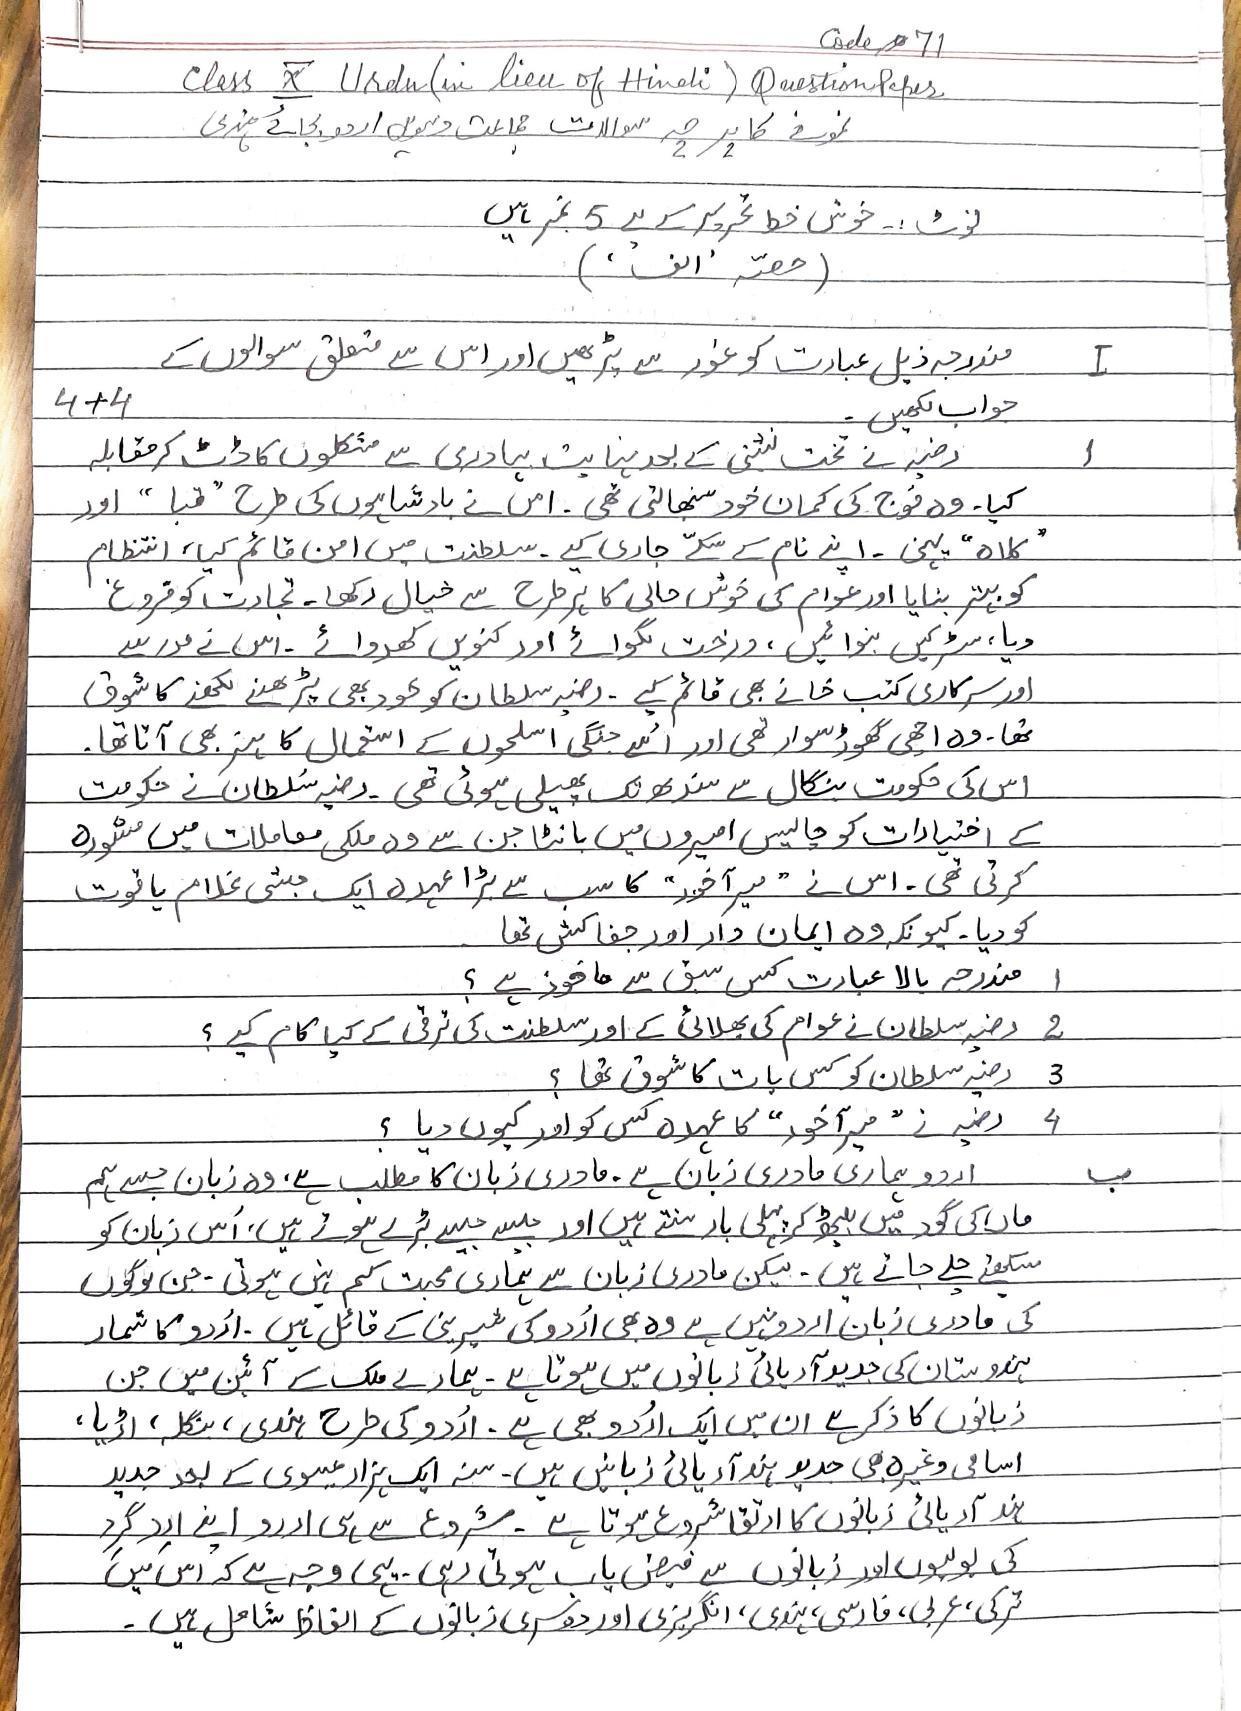 Code 71
Class X Urdu (in lieu of Hindi) Question Paper
نمونے کا پرچہ سوالات جماعت دسویں اردو بجائے ہندی
نوٹ :۔ خوش خط تحریر کے لیے 5 نمبر ہیں
(حصّہ 'الف')
I مندرجہ ذیل عبارت کو غور سے پڑھیں اور اس سے متعلق سوالوں کے
جواب لکھیں ۔ 4+4
ا رضیہ نے تخت نشینی کے بعد نہایت بہادری سے مشکلوں کا ڈٹ کر مقابلہ
کیا۔ وہ فوج کی کمان خود سنبھالتی تھی ۔ اس نے بادشاہوں کی طرح "قبا" اور
"کلاہ" پہنی ۔ اپنے نام کے سکّے جاری کیے ۔ سلطنت میں امن قائم کیا، انتظام
کو بہتر بنایا اور عوام کی خوش حالی کا ہر طرح سے خیال رکھا ۔ تجارت کو فروغ
دیا، سڑکیں بنوائیں، درخت لگوائے اور کنویں کھدوائے ۔ اس نے مدرسے
اور سرکاری کتب خانے بھی قائم کیے ۔ رضیہ سلطان کو خود بھی پڑھنے لکھنے کا شوق
تھا ۔ وہ اچھی گھوڑ سوار تھی اور اُسے جنگی اسلحوں کے استعمال کا ہنر بھی آتا تھا ۔
اس کی حکومت بنگال سے سندھ تک پھیلی ہوئی تھی ۔ رضیہ سُلطان نے حکومت
کے اختیارات کو چالیس امیروں میں بانٹا جن سے وہ ملکی معاملات میں مشورہ
کرتی تھی ۔ اس نے "میر آخور" کا سب سے بڑا عہدہ ایک حبشی غلام یاقوت
کو دیا ۔ کیونکہ وہ ایمان دار اور جفاکش تھا
1 مندرجہ بالا عبارت کس سبق سے ماخوذ ہے ؟
2 رضیہ سلطان نے عوام کی بھلائی کے اور سلطنت کی ترقی کے کیا کام کیے ؟
3 رضیہ سلطان کو کس بات کا شوق تھا ؟
4 رضیہ نے "میر آخور" کا عہدہ کس کو اور کیوں دیا ؟
ب اردو ہماری مادری زبان ہے ۔ مادری زبان کا مطلب ہے، وہ زبان جسے ہم
ماں کی گود میں پہلی بار سنتے ہیں اور جیسے جیسے بڑے ہوتے ہیں، اُس زبان کو
سیکھتے چلے جاتے ہیں ۔ لیکن مادری زبان سے ہماری محبت کم نہیں ہوتی ۔ جن لوگوں
کی مادری زبان اردو نہیں ہے وہ بھی اُردو کی شیرینی کے قائل ہیں ۔ اُردو کا شمار
ہندوستان کی جدید آریائی زبانوں میں ہوتا ہے ۔ ہمارے ملک کے آئین میں جن
زبانوں کا ذکر ہے ان میں ایک اُردو بھی ہے ۔ اُردو کی طرح ہندی، بنگلہ، اڑیا،
اسامی وغیرہ بھی جدید ہند آریائی زبانیں ہیں ۔ سنہ ایک ہزار عیسوی کے بعد جدید
ہند آریائی زبانوں کا ارتقا شروع ہوتا ہے ۔ شروع سے ہی اردو اپنے ارد گرد
کی بولیوں اور زبانوں سے فیض یاب ہوتی رہی ۔ یہی وجہ ہے کہ اس میں
ترکی، عربی، فارسی، ہندی، انگریزی اور دوسری زبانوں کے الفاظ شامل ہیں ۔